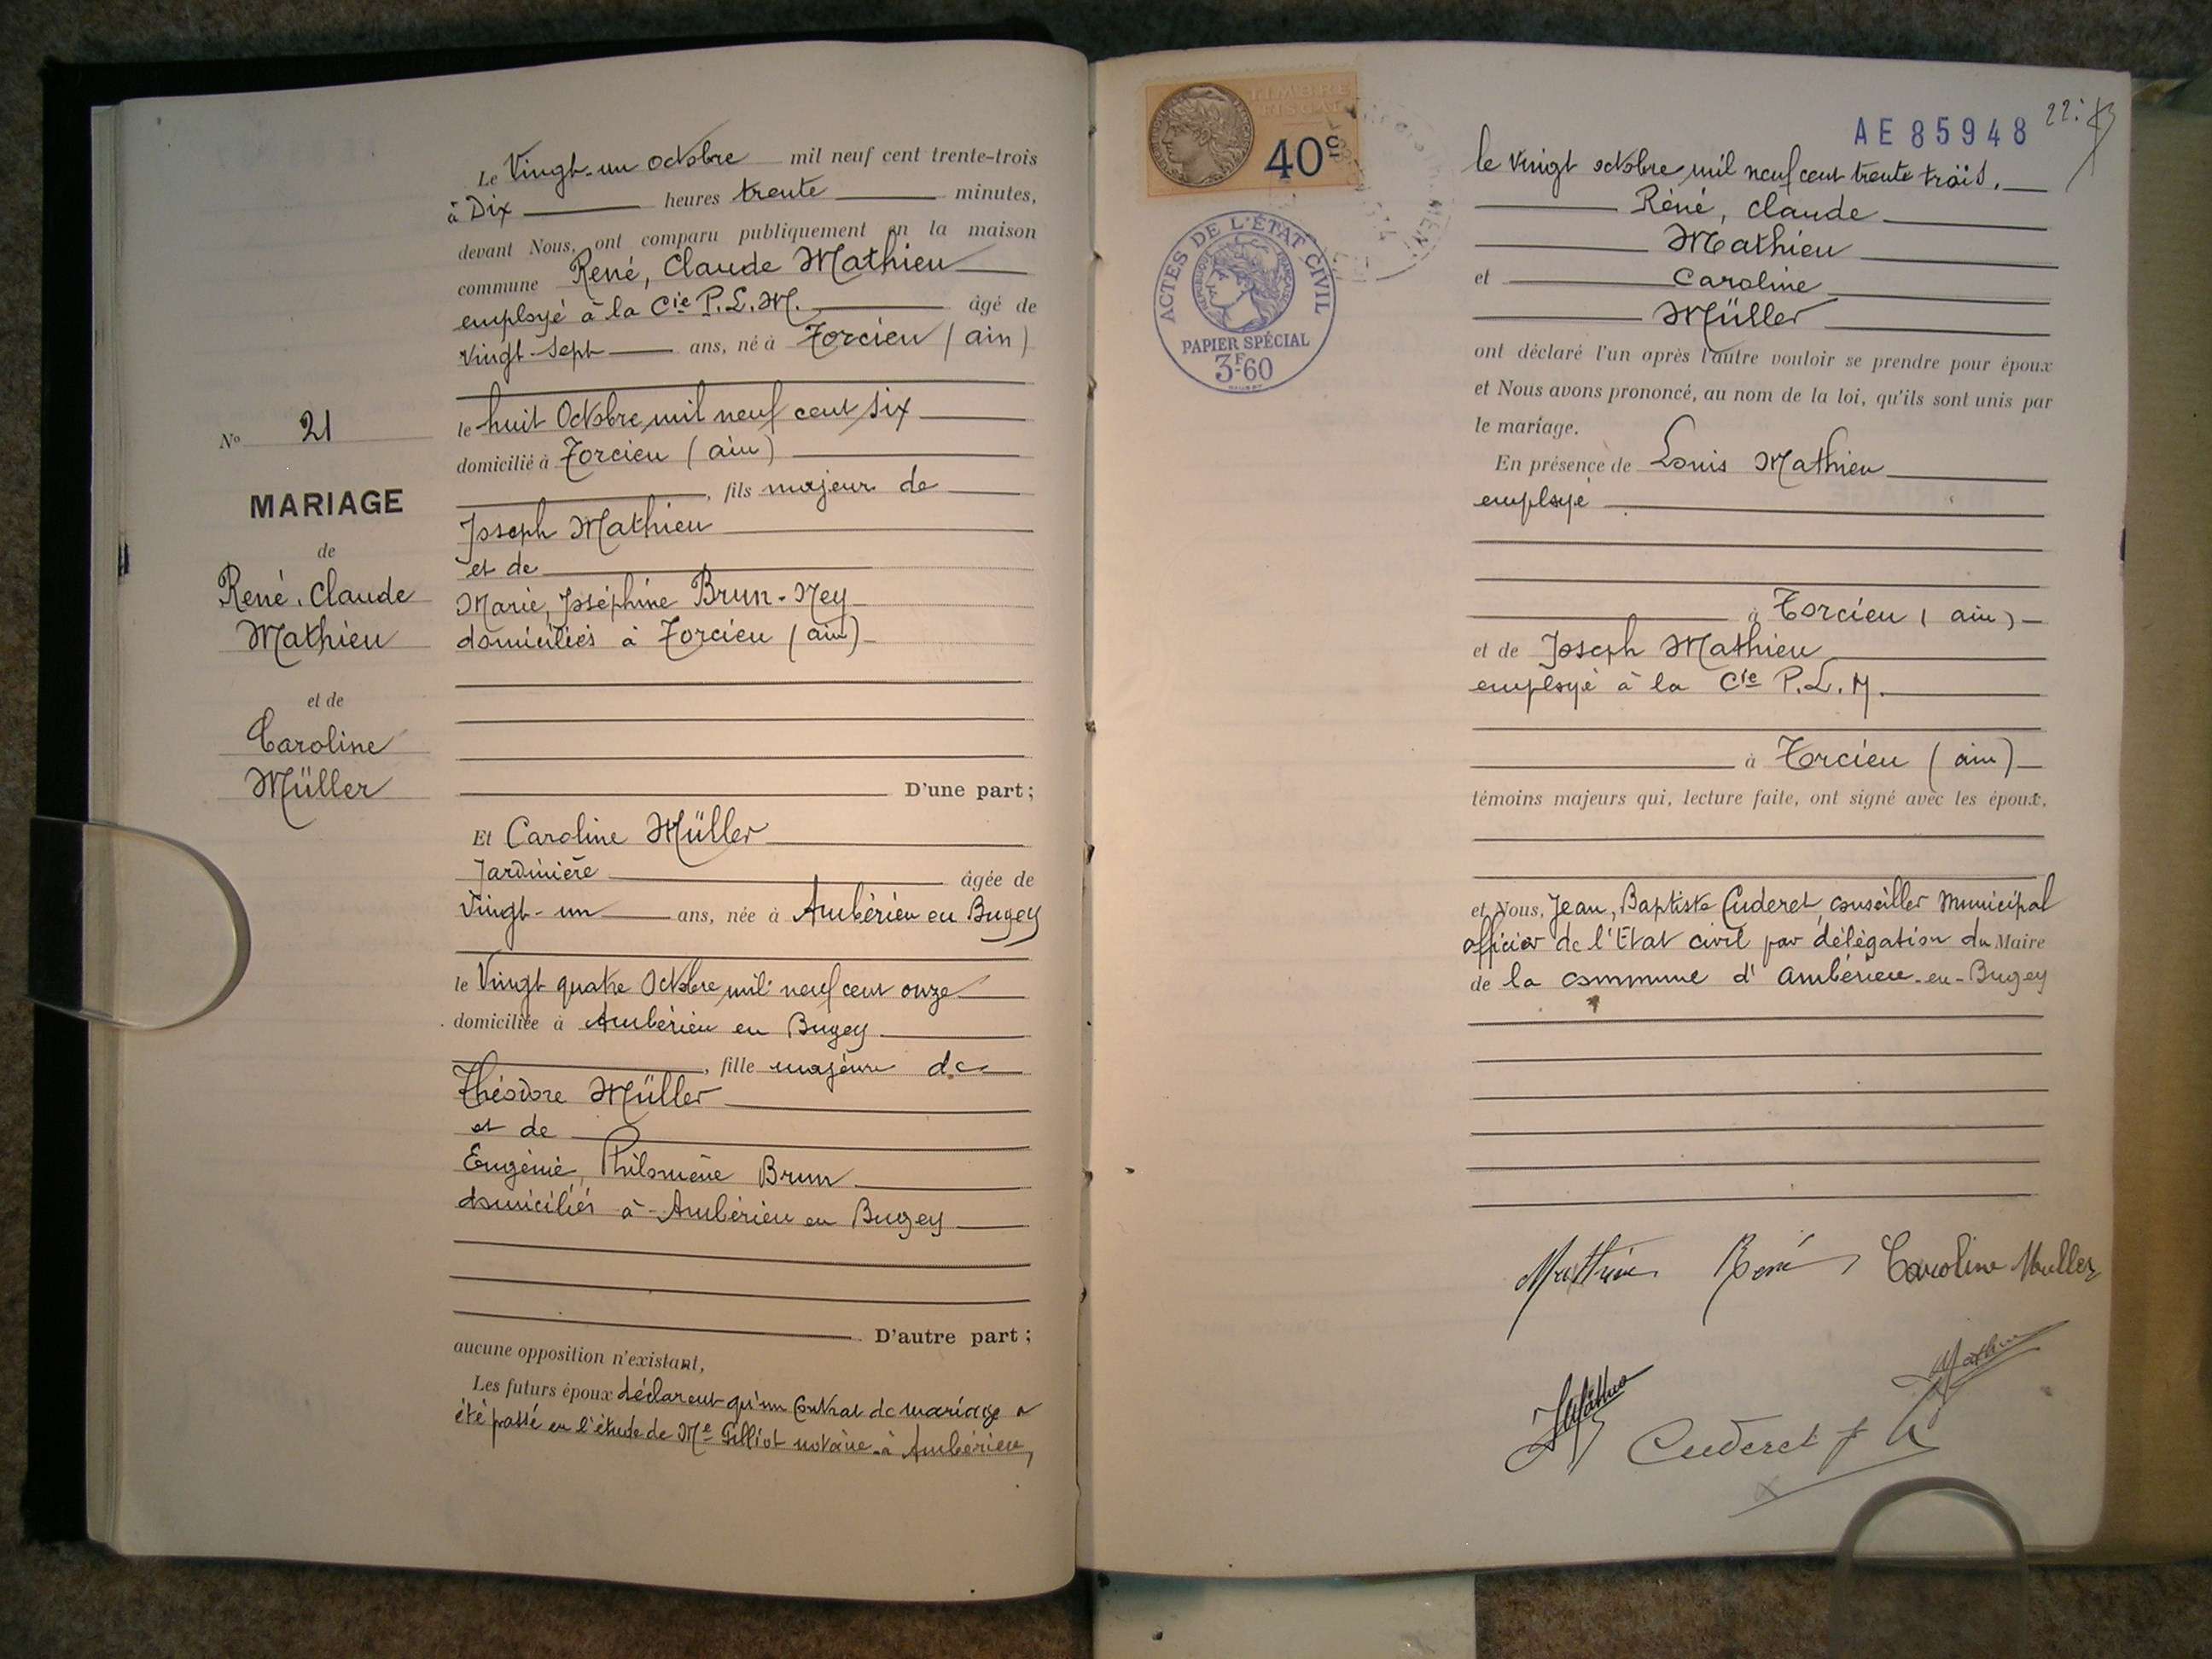 Le Vingt-un octobre mil neuf cent trente-trois
à Dix heures trente minutes,
devant Nous, ont comparu publiquement en la maison
commune René, Claude Mathieu
employé à la Cie P.L.M. âgé de
vingt-sept ans, né à Torcieu (ain)
le huit Octobre mil neuf cent six
domicilié à Torcieu (ain)
, fils majeur de
Joseph Mathieu
et de
Marie, Joséphine Brun-Ney
domiciliés à Torcieu (ain)
D'une part;
Et Caroline Müller
Jardinière âgée de
Vingt-un ans, née à Ambérieu en Bugey
le Vingt quatre Octobre mil neuf cent onze
domiciliée à Ambérieu en Bugey
, fille majeure de
Théodore Müller
et de
Eugénie, Philomène Brun
domiciliés à Ambérieu en Bugey
D'autre part;
aucune opposition n'existant,
Les futurs époux déclarent qu'un Contrat de mariage a
été passé en l'étude de Me Gilliot notaire à Ambérieu,
No 21
MARIAGE
de
René, Claude
Mathieu
et de
Caroline
Müller
TIMBRE
FISCAL
40c
ACTES DE L'ÉTAT CIVIL
RÉPUBLIQUE FRANÇAISE
PAPIER SPÉCIAL
3F60
AE 85948
le vingt octobre mil neuf cent trente trois.
René, Claude
Mathieu
et Caroline
Müller
ont déclaré l'un après l'autre vouloir se prendre pour époux
et Nous avons prononcé, au nom de la loi, qu'ils sont unis par
le mariage.
En présence de Louis Mathieu
employé
à Torcieu (ain)
et de Joseph Mathieu
employé à la Cie P.L.M.
à Torcieu (ain)
témoins majeurs qui, lecture faite, ont signé avec les époux,
et Nous, Jean, Baptiste Cuderet, conseiller Municipal
officier de l'Etat civil par délégation du Maire
de la commune d'Ambérieu-en-Bugey
Mathieu René Caroline Muller
Mathieu
Cuderet